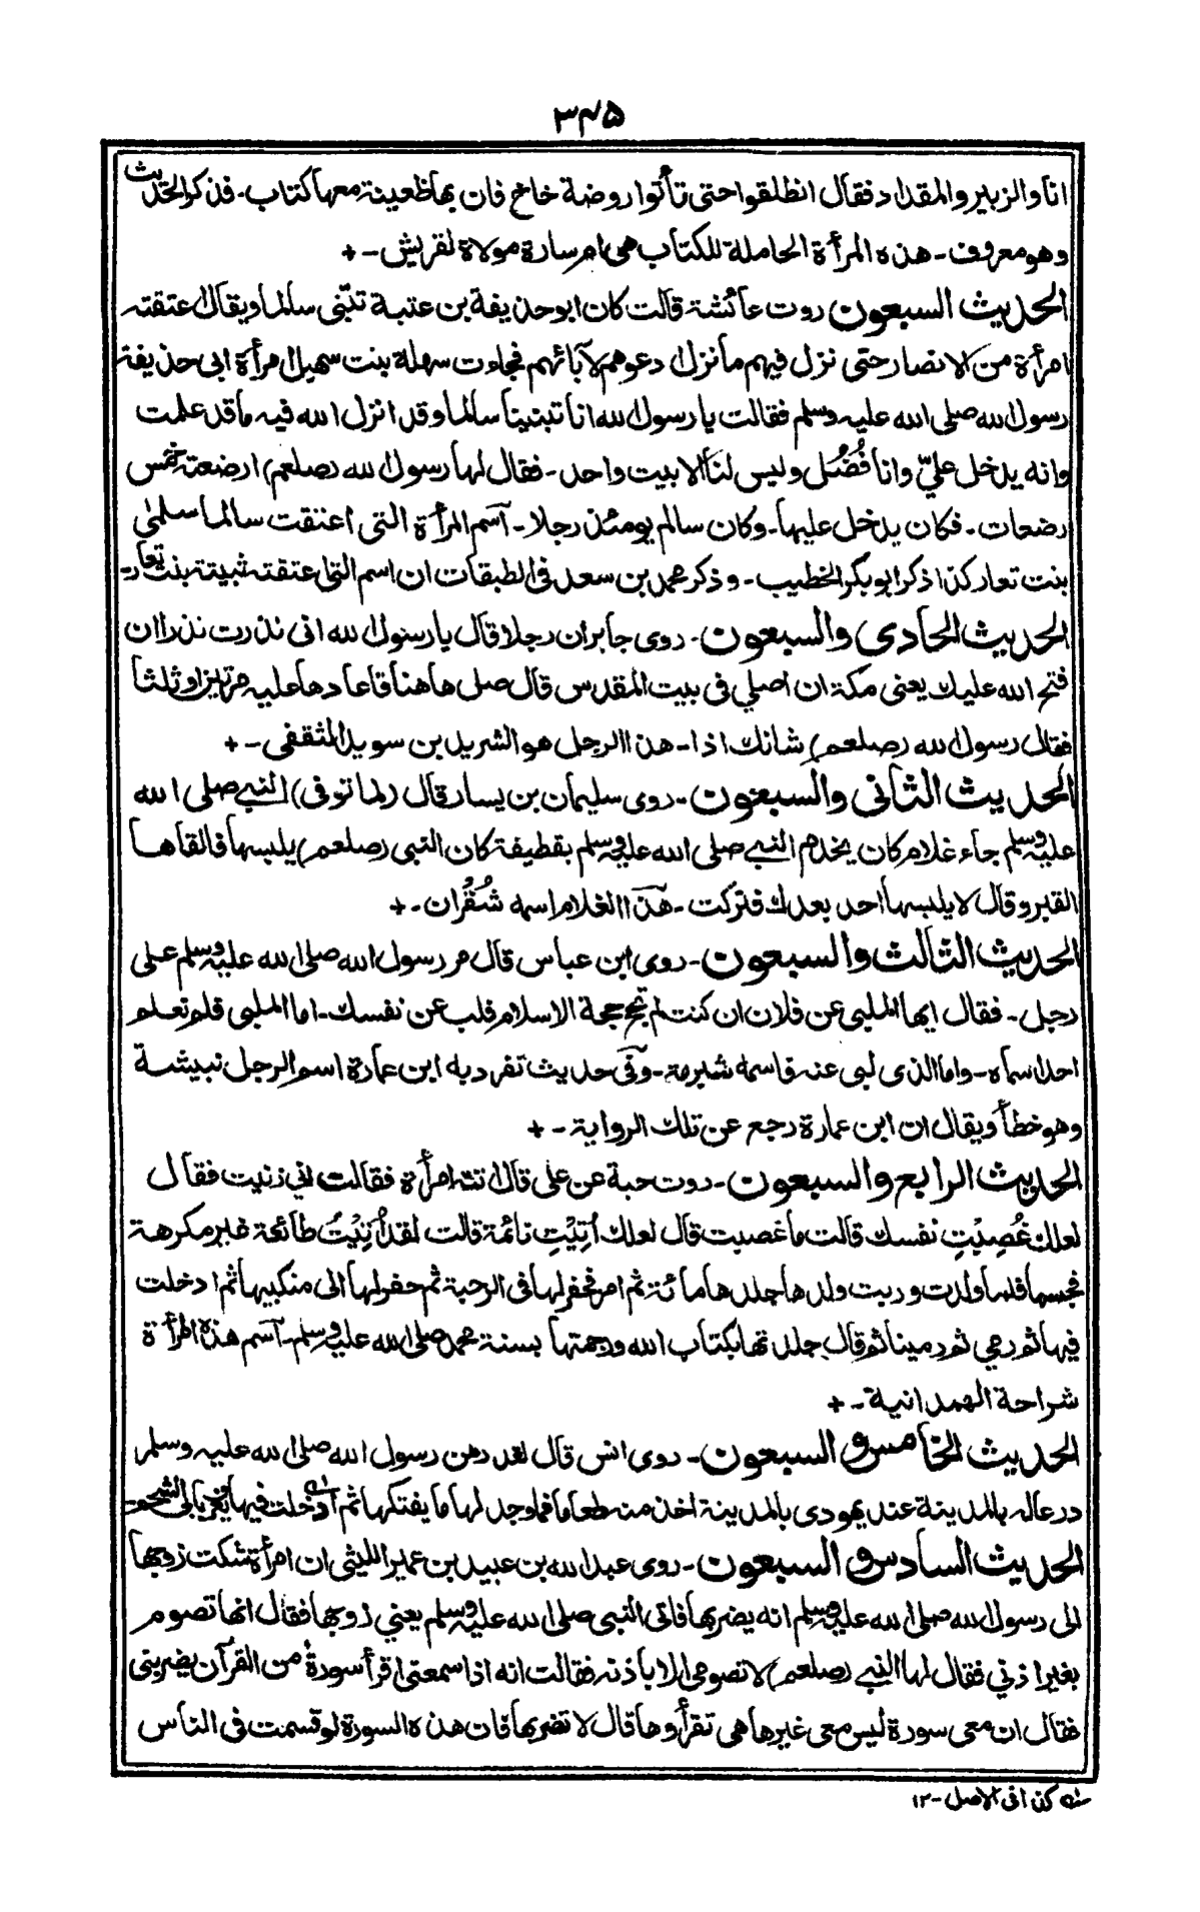 ٣٤٥
انا والزبير والمقداد فقال انطلقوا حتى تأتوا روضة خاخ فان بها ظعينة معها كتاب ـ فذكر الحديث
وهو معروف ـ هذه المرأة الحاملة للكتاب هى ام سارة مولاة لقريش ـ +
الحديث السبعون روت عائشة قالت كان ابو حذيفة بن عتبة تبنّى سالما ويقال اعتقته
امرأة من الانصار حتى نزل فيهم ما نزل ادعوهم لآبائهم فجاءت سهلة بنت سهيل امرأة ابى حذيفة
رسول الله صلى الله عليه وسلم فقالت يا رسول الله انا تبنينا سالما وقد انزل الله فيه ما قد علمت
وانه يدخل عليّ وانا فُضُل وليس لنا الا بيت واحد ـ فقال لها رسول الله (صلعم) ارضعته خمس
رضعات ـ فكان يدخل عليها ـ وكان سالم يومئذ رجلا ـ آسم المرأة التى اعتقت سالما سلمىٰ
بنت تعار كذا ذكر ابو بكر الخطيب ـ وذكر محمد بن سعد فى الطبقات ان اسم التى اعتقته ثبيتة بنت تعار ـ
الحديث الحادى والسبعون ـ روى جابر ان رجلا قال يا رسول الله انى نذرت نذرا ان
فتح الله عليك يعنى مكة ان اصلي فى بيت المقدس قال صل هاهنا فاعادها عليه مرتين او ثلثا
فقال رسول الله (صلعم) شانك اذا ـ هذا الرجل هو الشريد بن سويد الثقفى ـ +
الحديث الثانى والسبعون ـ روى سليمان بن يسار قال (لما توفى) النبي صلى الله
عليه وسلم جاء غلام كان يخدم النبي صلى الله عليه وسلم بقطيفة كان النبى (صلعم) يلبسها فالقاها
القبر وقال لا يلبسها احد بعدك فتركت ـ هذا الغلام اسمه شُقُران ـ +
الحديث الثالث والسبعون ـ روى ابن عباس قال مر رسول الله صلى الله عليه وسلم على
رجل ـ فقال ايها الملبى عن فلان ان كنت لم تحج حجة الاسلام فلب عن نفسك ـ اما الملبى فلم تعلم
احدا سماه ـ واما الذى لبى عنه فاسمه شبرمة ـ وفى حديث تفرد به ابن عمارة اسم الرجل نبيشة
وهو خطأ ويقال ان ابن عمارة رجع عن تلك الرواية ـ +
الحديث الرابع والسبعون ـ روت حبة عن على قال اتته امرأة فقالت انى زنيت فقال
لعلك غُصِبْتِ نفسك قالت ما غصبت قال لعلك اُتِيْتِ نائمة قالت لقد اُتِيْتُ طائعة غير مكرهة
فحبسها فلما ولدت وربت ولدها جلدها مائة ثم امر فحفر لها فى الرحبة ثم حفر لها الى منكبيها ثم ادخلت
فيها ثم رمي ثم رمينا ثم قال جلدتها بكتاب الله ورجمتها بسنة محمد صلى الله عليه وسلم ـ آسم هذه المرأة
شراحة الهمدانية ـ +
الحديث الخامس و السبعون ـ روى انس قال لقد رهن رسول الله صلى الله عليه وسلم
درعا له بالمدينة عند يهودى بالمدينة اخذ منه طعاما فما وجد لها ما يفتكها ثم ادخلت فيها
الحديث السادس و السبعون ـ روى عبد الله بن عبيد بن عمير الليثى ان امرأة شكت زوجها
الى رسول الله صلى الله عليه وسلم انه يضربها فاتى النبى صلى الله عليه وسلم يعني زوجها فقال انها تصوم
بغير اذني فقال لها النبي (صلعم) لا تصومى الا باذنه فقالت انه اذا سمعنى اقرأ سورة من القرآن يضربنى
فقال ان معى سورة ليس معى غيرها هى تقرأوها قال لا تضربها فان هذه السورة لو قسمت فى الناس
كذا فى الاصل ـ ١٢